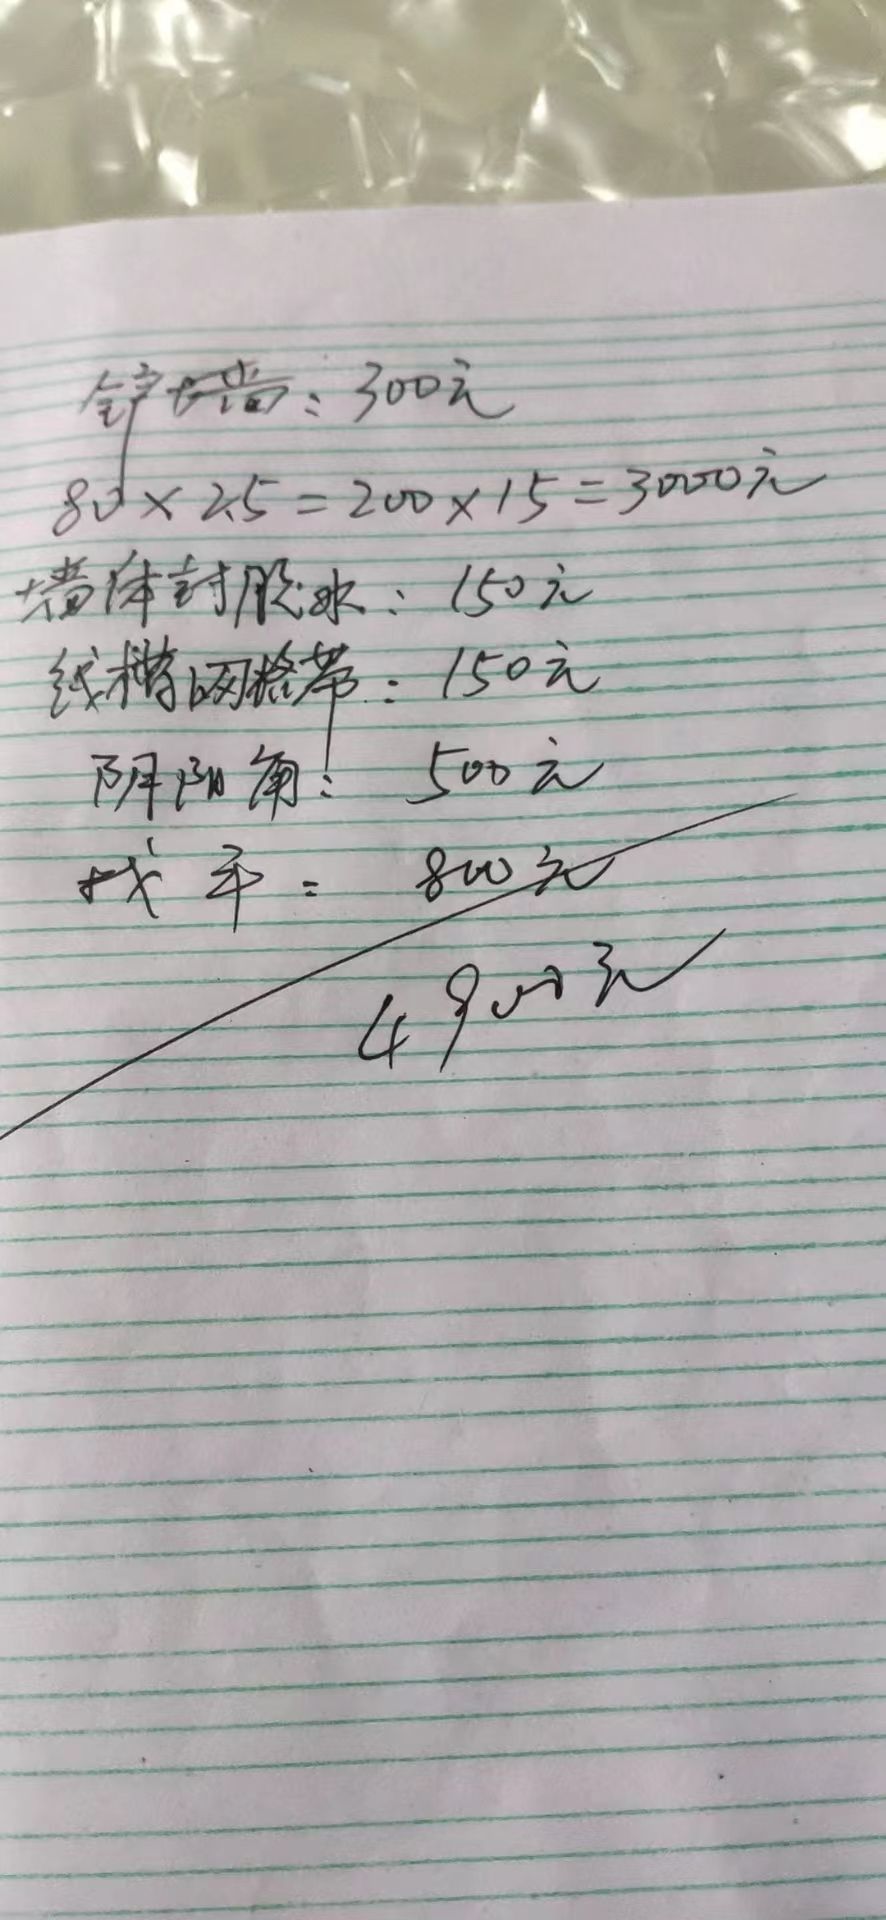 铲墙：300元
80×2.5=200×15=3000元
墙体封胶水：150元
线槽网格带：150元
阴阳角：500元
找平：800元
4900元